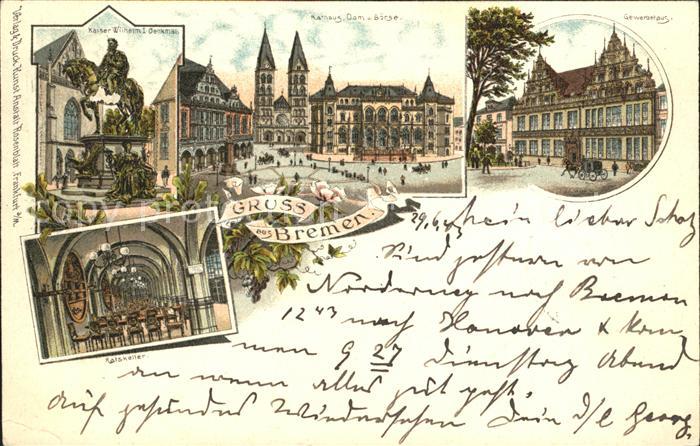 Kaiser Wilhelm I Denkmal.
Rathaus, Dom u. Börse.
Gewerbehaus.
Verlag & Druck Kunst Anstalt Rosenblatt, Frankfurt a/M.
GRUSS
aus Bremen.
Ratskeller.
29.6. Mein lieber Schatz
Sind gestern von
Norderney nach Bremen
12 43 nach Hanover & kom
men 9 27 Dienstag Abend
an wenn alles gut geht,
Auf gesundes Wiedersehen Dein d/l Georg